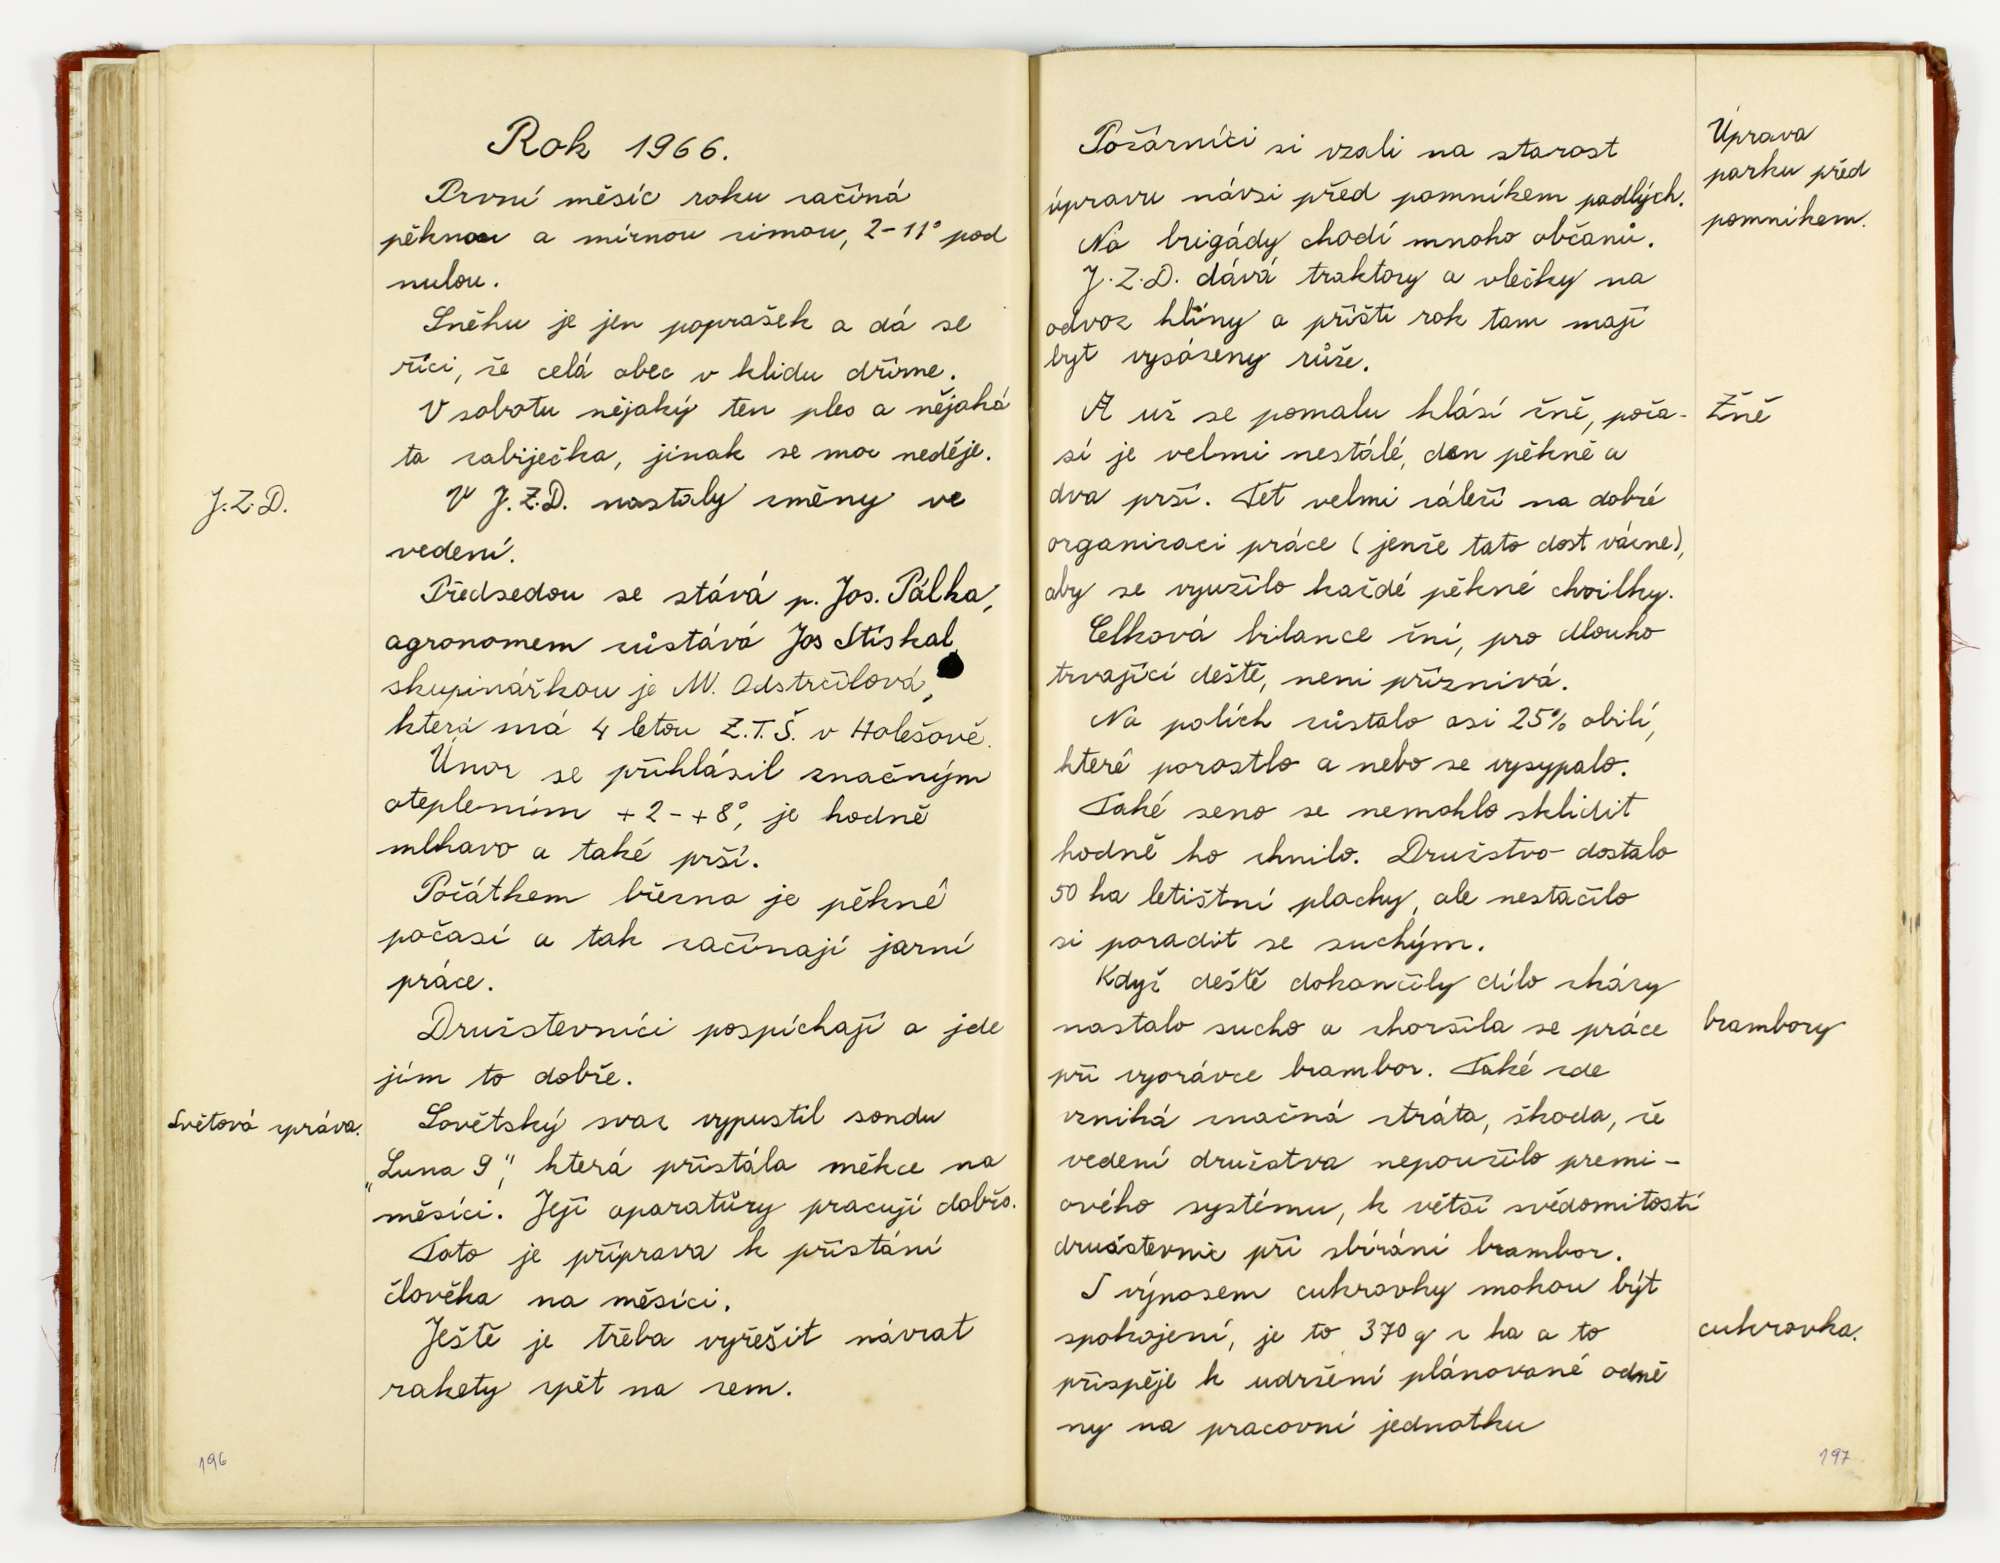 Rok 1966.
První měsíc roku začíná
pěknou a mírnou zimou, 2-11° pod
nulou.
Sněhu je jen poprašek a dá se
říci, že celá obec v klidu dříme.
V sobotu nějaký ten ples a nějaká
ta zabiječka, jinak se moc neděje.
J.Z.D.
V J.Z.D. nastaly změny ve
vedení.
Předsedou se stává p. Jos. Pálka,
agronomem zůstává Jos Stískal,
skupinářkou je M. Odstrčilová,
která má 4 letou Z.T.Š. v Holešově.
Únor se přihlásil značným
oteplením +2-+8°, je hodně
mlhavo a také prší.
Počátkem března je pěkné
počasí a tak začínají jarní
práce.
Družstevníci pospíchají a jde
jím to dobře.
Světová zpráva.
Sovětský svaz vypustil sondu
„Luna 9", která přistála měkce na
měsíci. Její aparatůry pracují dobře.
Toto je příprava k přistání
člověka na měsíci.
Ještě je třeba vyřešit návrat
rakety zpět na zem.
196
Požárníci si vzali na starost
úpravu návsi před pomníkem padlých.
Na brigády chodí mnoho občanů.
J.Z.D. dává traktory a vlečky na
odvoz hlíny a příští rok tam mají
být vysázeny růže.
Úprava
parku před
pomníkem.
A už se pomalu hlásí žně, poča-
sí je velmi nestálé, den pěkně a
dva prší. Teť velmi záleží na dobré
organizaci práce (jenže tato dost vázne),
aby se využilo každé pěkné chvilky.
Žně
Celková bilance žní, pro dlouho
trvající deště, není příznivá.
Na polích zůstalo asi 25% obilí,
které porostlo a nebo se vysypalo.
Také seno se nemohlo sklidit
hodně ho shnilo. Družstvo dostalo
50 ha letištní plochy, ale nestačilo
si poradit se suchým.
Když deště dokončily dílo zkázy
nastalo sucho a zhoršila se práce
při vyorávce brambor. Také zde
vzniká značná ztráta, škoda, že
vedení družstva nepoužilo premi-
ového systému, k větší svědomitosti
družstevnic při sbírání brambor.
brambory
S výnosem cukrovky mohou být
spokojení, je to 370 q z ha a to
přispěje k udržení plánované odmě
ny na pracovní jednotku
cukrovka.
197